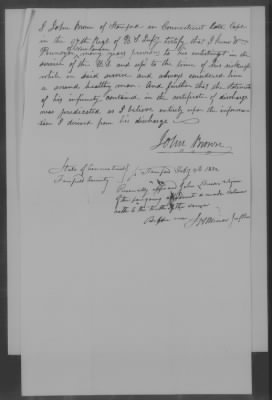 I John Brown of Stamford in Connecticut late Capt.
in the 37th Regt. of U. S. Infy. certify, that I knew
many years previous to his enlistment in the
service of the U.S. and up to the time of his discharge
while in said service and always considered him
a sound, healthy man. And further that the statement
of his infirmity contained in the certificate of discharge
was predicated as I believe entirely upon the information
I derived from his discharge
John Brown
State of Connecticut
Fairfield County
Stamford Feby
Personally appeared John Brown signer
of the foregoing and made solemn
oath to the truth of the same
Before me